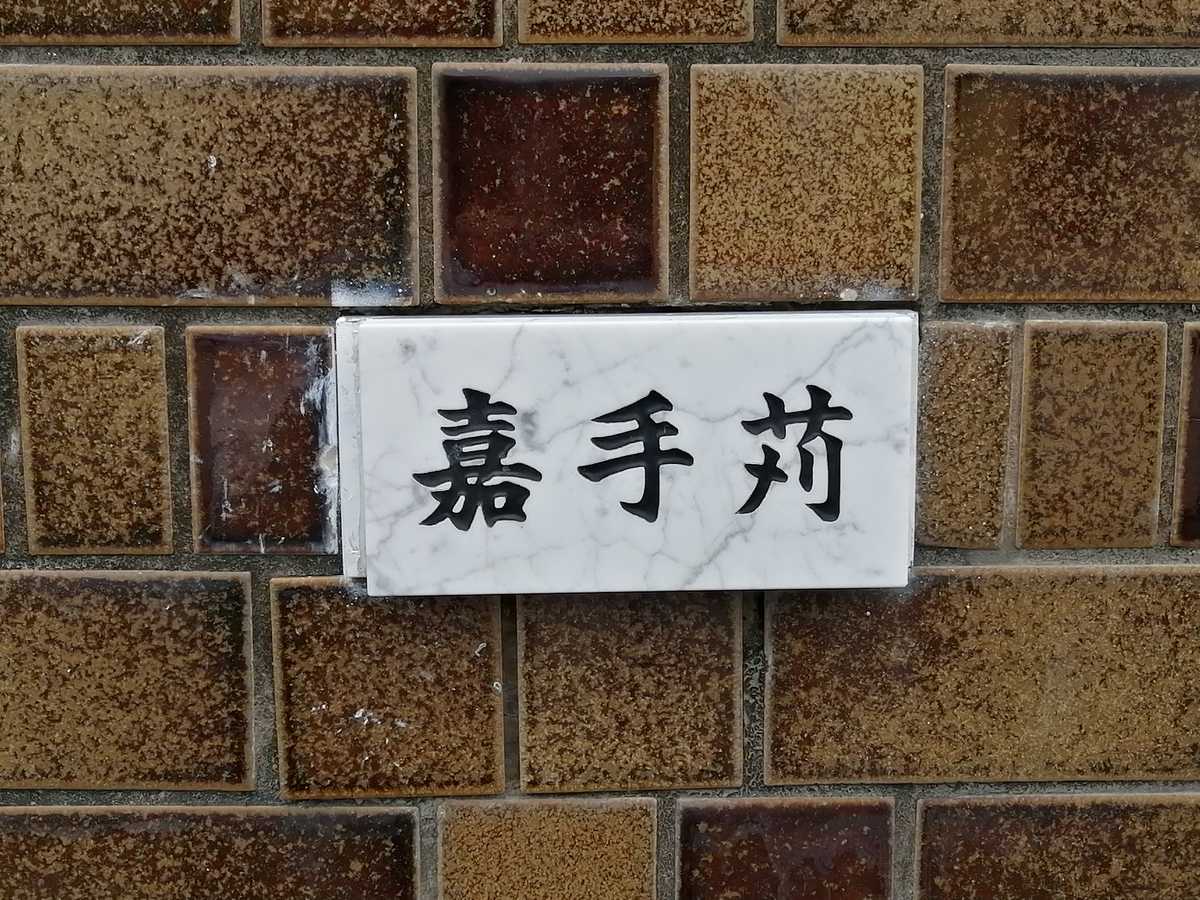 嘉手苅